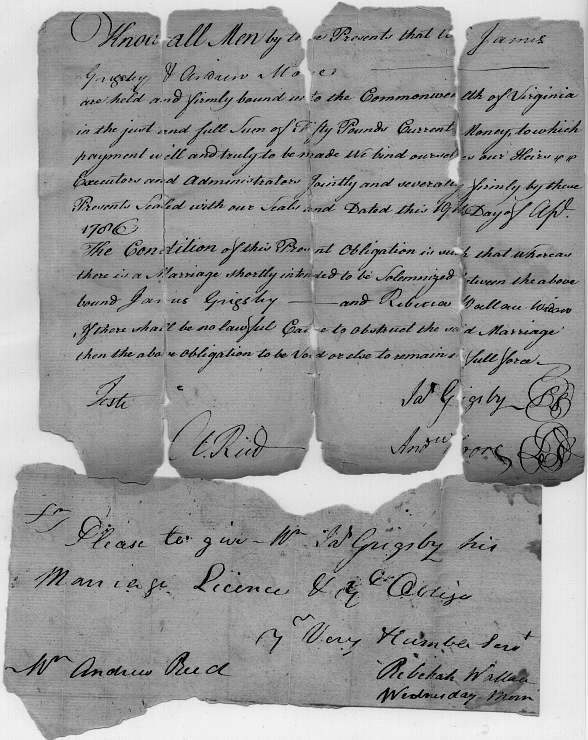 Know all Men by these Presents that we James
Grigsby & Andrew Moore
are held and firmly bound unto the Commonwealth of Virginia
in the just and full Sum of Fifty Pounds Current Money, to which
payment well and truly to be made We bind ourselves our Heirs
Executors and Administrators Jointly and severally firmly by these
Presents Sealed with our Seals and Dated this Day of Apl.
1786
The Condition of this Present Obligation is such that whereas
there is a Marriage shortly intended to be Solemnized between the above
bound James Grigsby — and Rebecca Wallace Widow
If there shall be no lawful Cause to obstruct the said Marriage
then the above Obligation to be Void or else to remain in full force
Teste Jas Grigsby
A. Reid Andw Moore
Sr
Please to give Mr Jas Grigsby his
Marriage Licence & Oblige
yr Very Humble Servt
Mr Andrew Reid Rebekah Wallace
Wednesday Morn